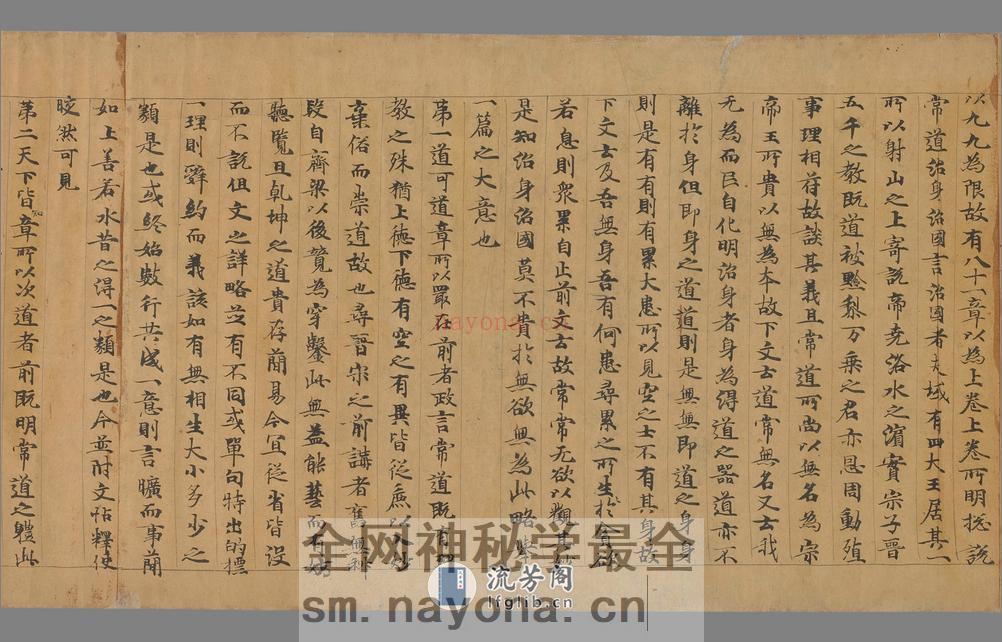 以九九為限故有八十一章以為上卷上卷所明捴說
常道治身治國言治國者夫域有四大王居其一
所以射山之上寄說帝堯洛水之濵實宗子晋
五千之教既道被黔梨万乗之君亦恩周動殖
事理相苻故談其義且常道所尚以無名為宗
帝王所貴以無為為本故下文云道常無名又云我
无為而民自化明治身者身為得道之器道亦不
離於身但即身之道道則是無無即道之身身
則是有有則有累大患所以見空之士不有其身故
下文云及吾無身吾有何患尋累之所生生於
若息則衆累自止前文云故常常无欲以觀其
是知治身治國莫不貴於無欲無為此略
一篇之大意也
第一道可道章所以冣前者政言常道既有
教之殊猶上徳下徳有空之有異皆從麁以入
棄俗而崇道故也尋晋宋之前講者舊無科
段自齊梁以後竸為穿鑿此無益能藝而不
聽覧且乹坤之道貴存蕳易今冝從省皆沒
而不說但文之詳略㒰有不同或單句特出的摽
一理則辝約而義該如有無相生大小多少之
類是也或終始數行共成一意則言曠而事蕳
如上善若水昔之得一之類是也今並附文帖釋使
晈然可見
第二天下皆知章所以次道者前既明常道之軆此
nayona.cn
全网神秘学最全
流芳阁
lfglib.cn
sm.nayona.cn